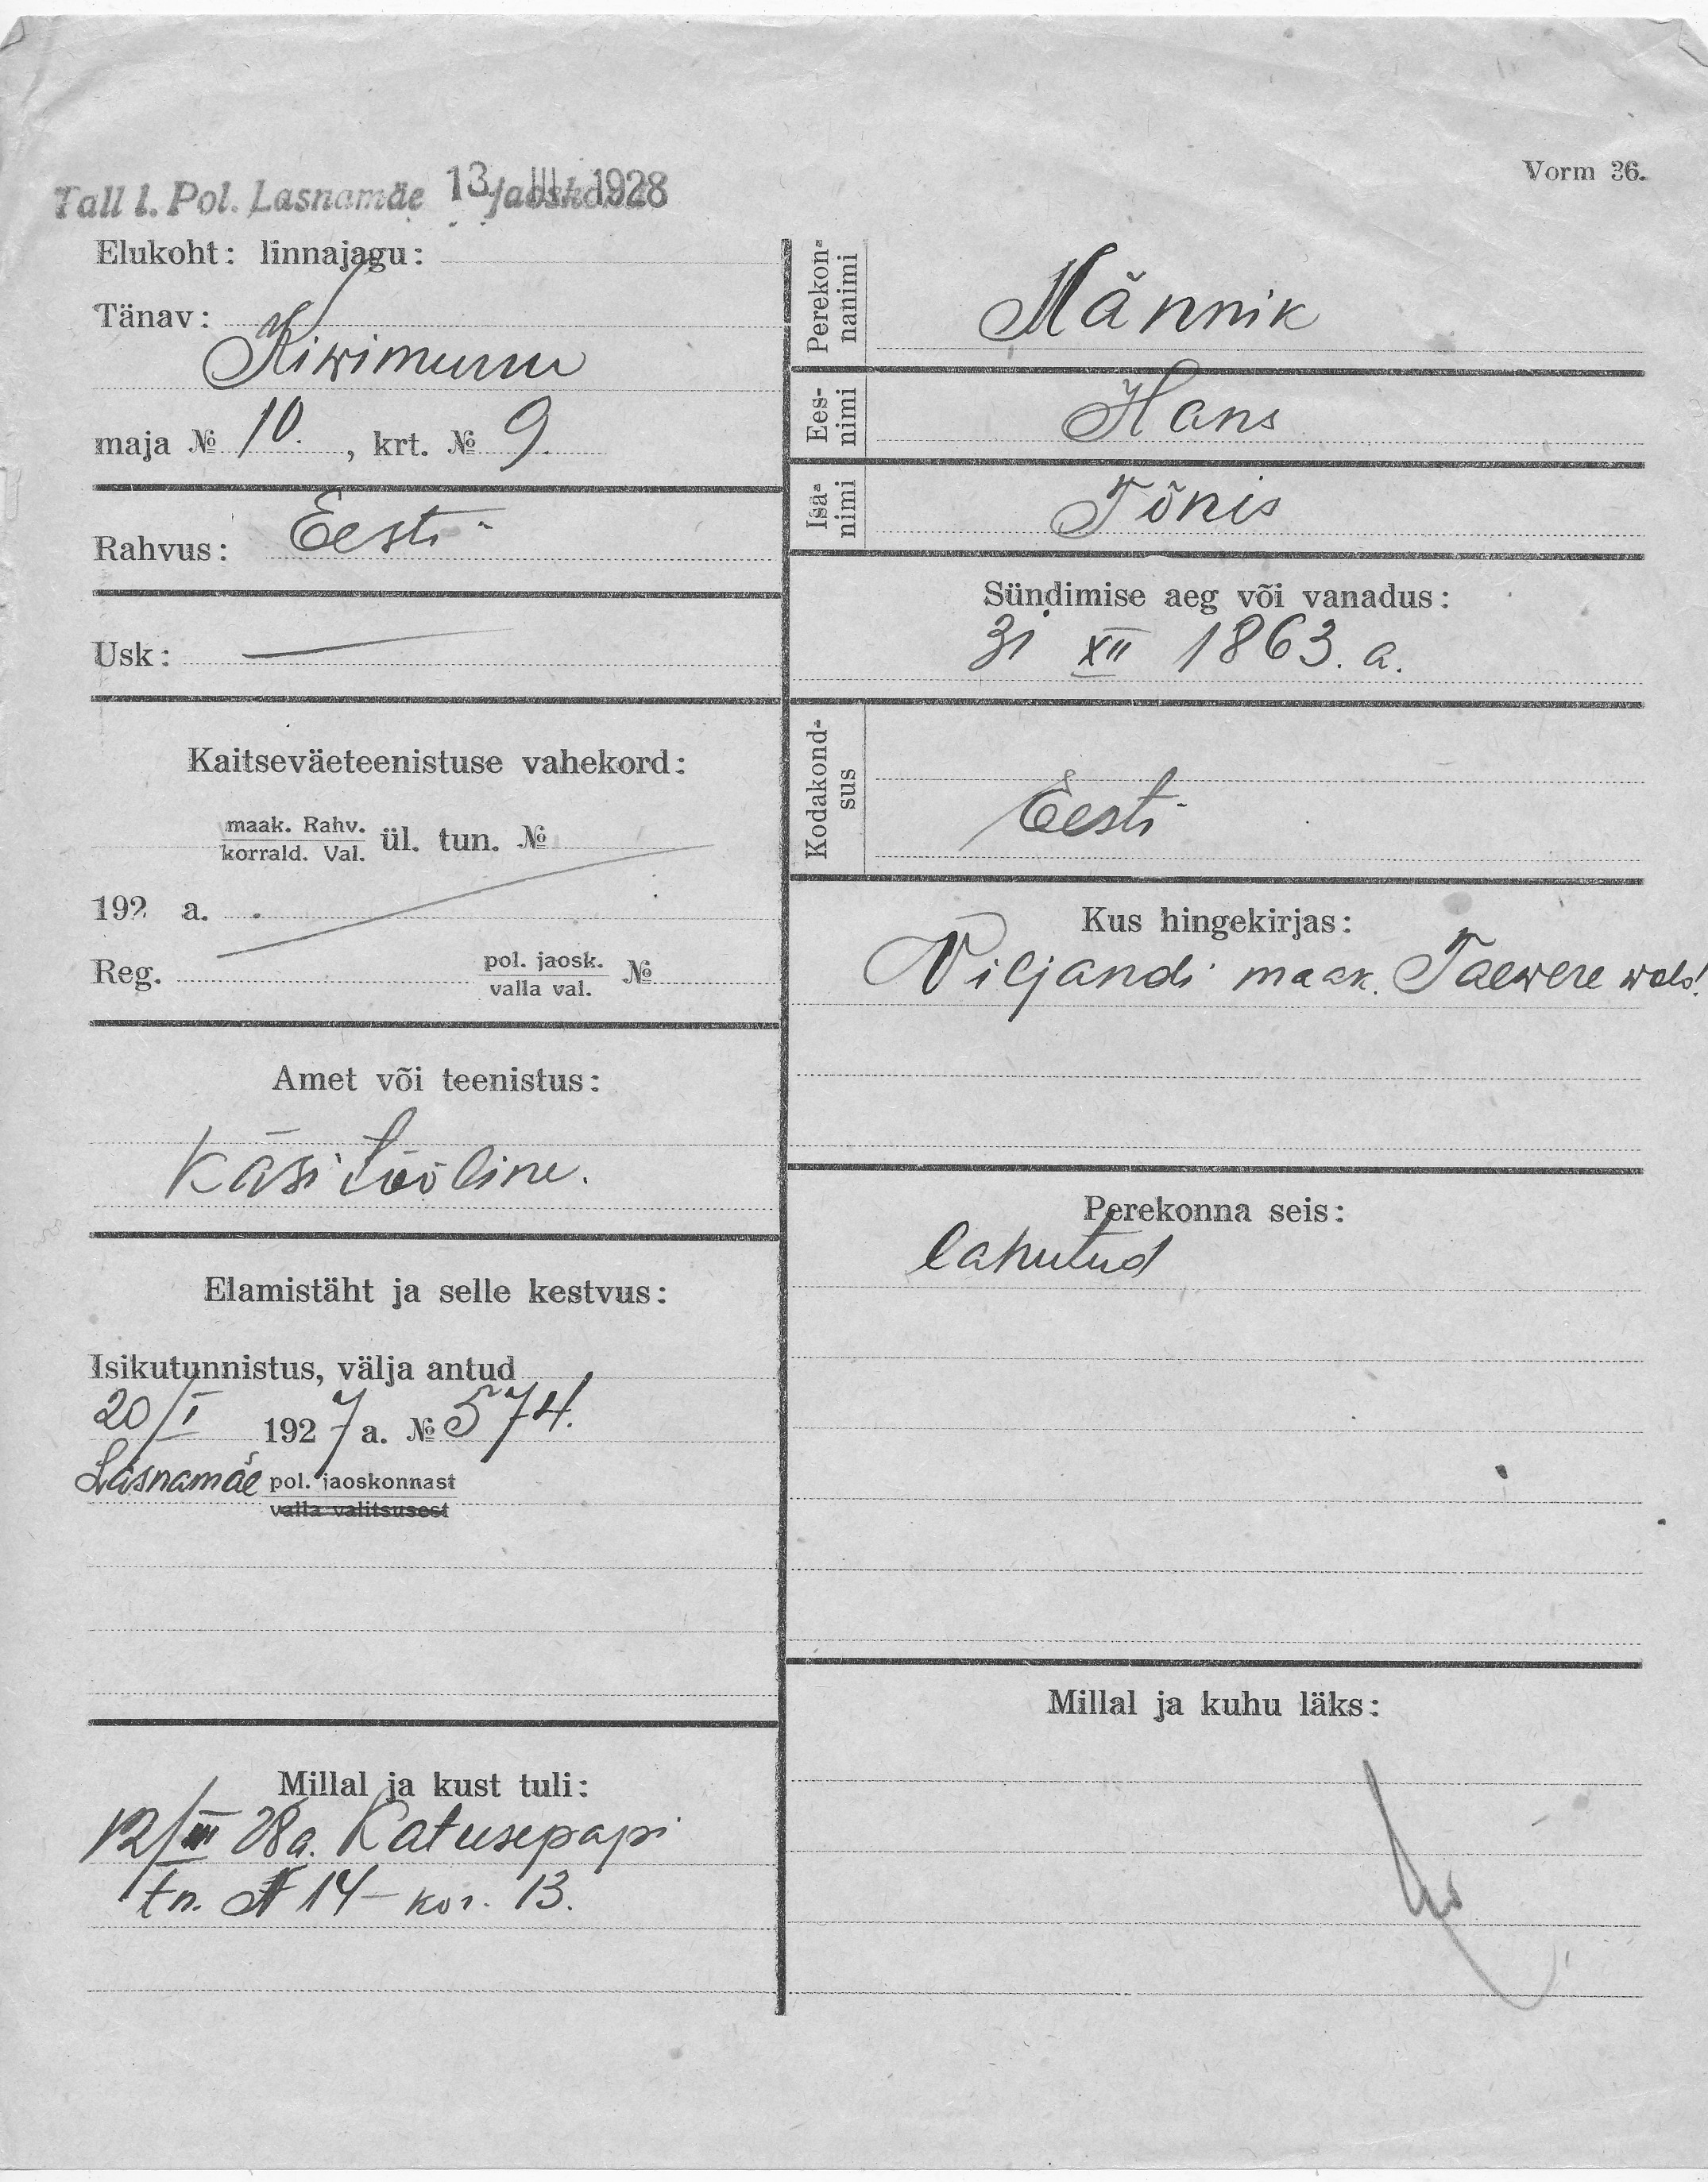 Vorm 36.
Tall l. Pol. Lasnamäe jaoskond
13 III 1928
Elukoht: linnajagu:
Tänav:
Kiwimurru
maja № 10. , krt. № 9.
Rahvus: Eesti
Usk: —
Kaitseväeteenistuse vahekord:
maak. Rahv.
korrald. Val.
ül. tun. №
192 a.
Reg. pol. jaosk. №
valla val.
Amet või teenistus:
Käsitööline.
Elamistäht ja selle kestvus:
Isikutunnistus, välja antud
20/I 1927 a. № 574.
Lasnamäe pol. jaoskonnast
valla valitsusest
Millal ja kust tuli:
12/III 28a. Katusepapi
tn. № 14 – kor. 13.
Perekon-
nanimi
Männik
Ees-
nimi
Hans
Isa-
nimi
Tõnis
Sündimise aeg või vanadus:
31 XII 1863. a.
Kodakond-
sus
Eesti
Kus hingekirjas:
Viljandi maak. Taewere wald.
Perekonna seis:
lahutud
Millal ja kuhu läks: